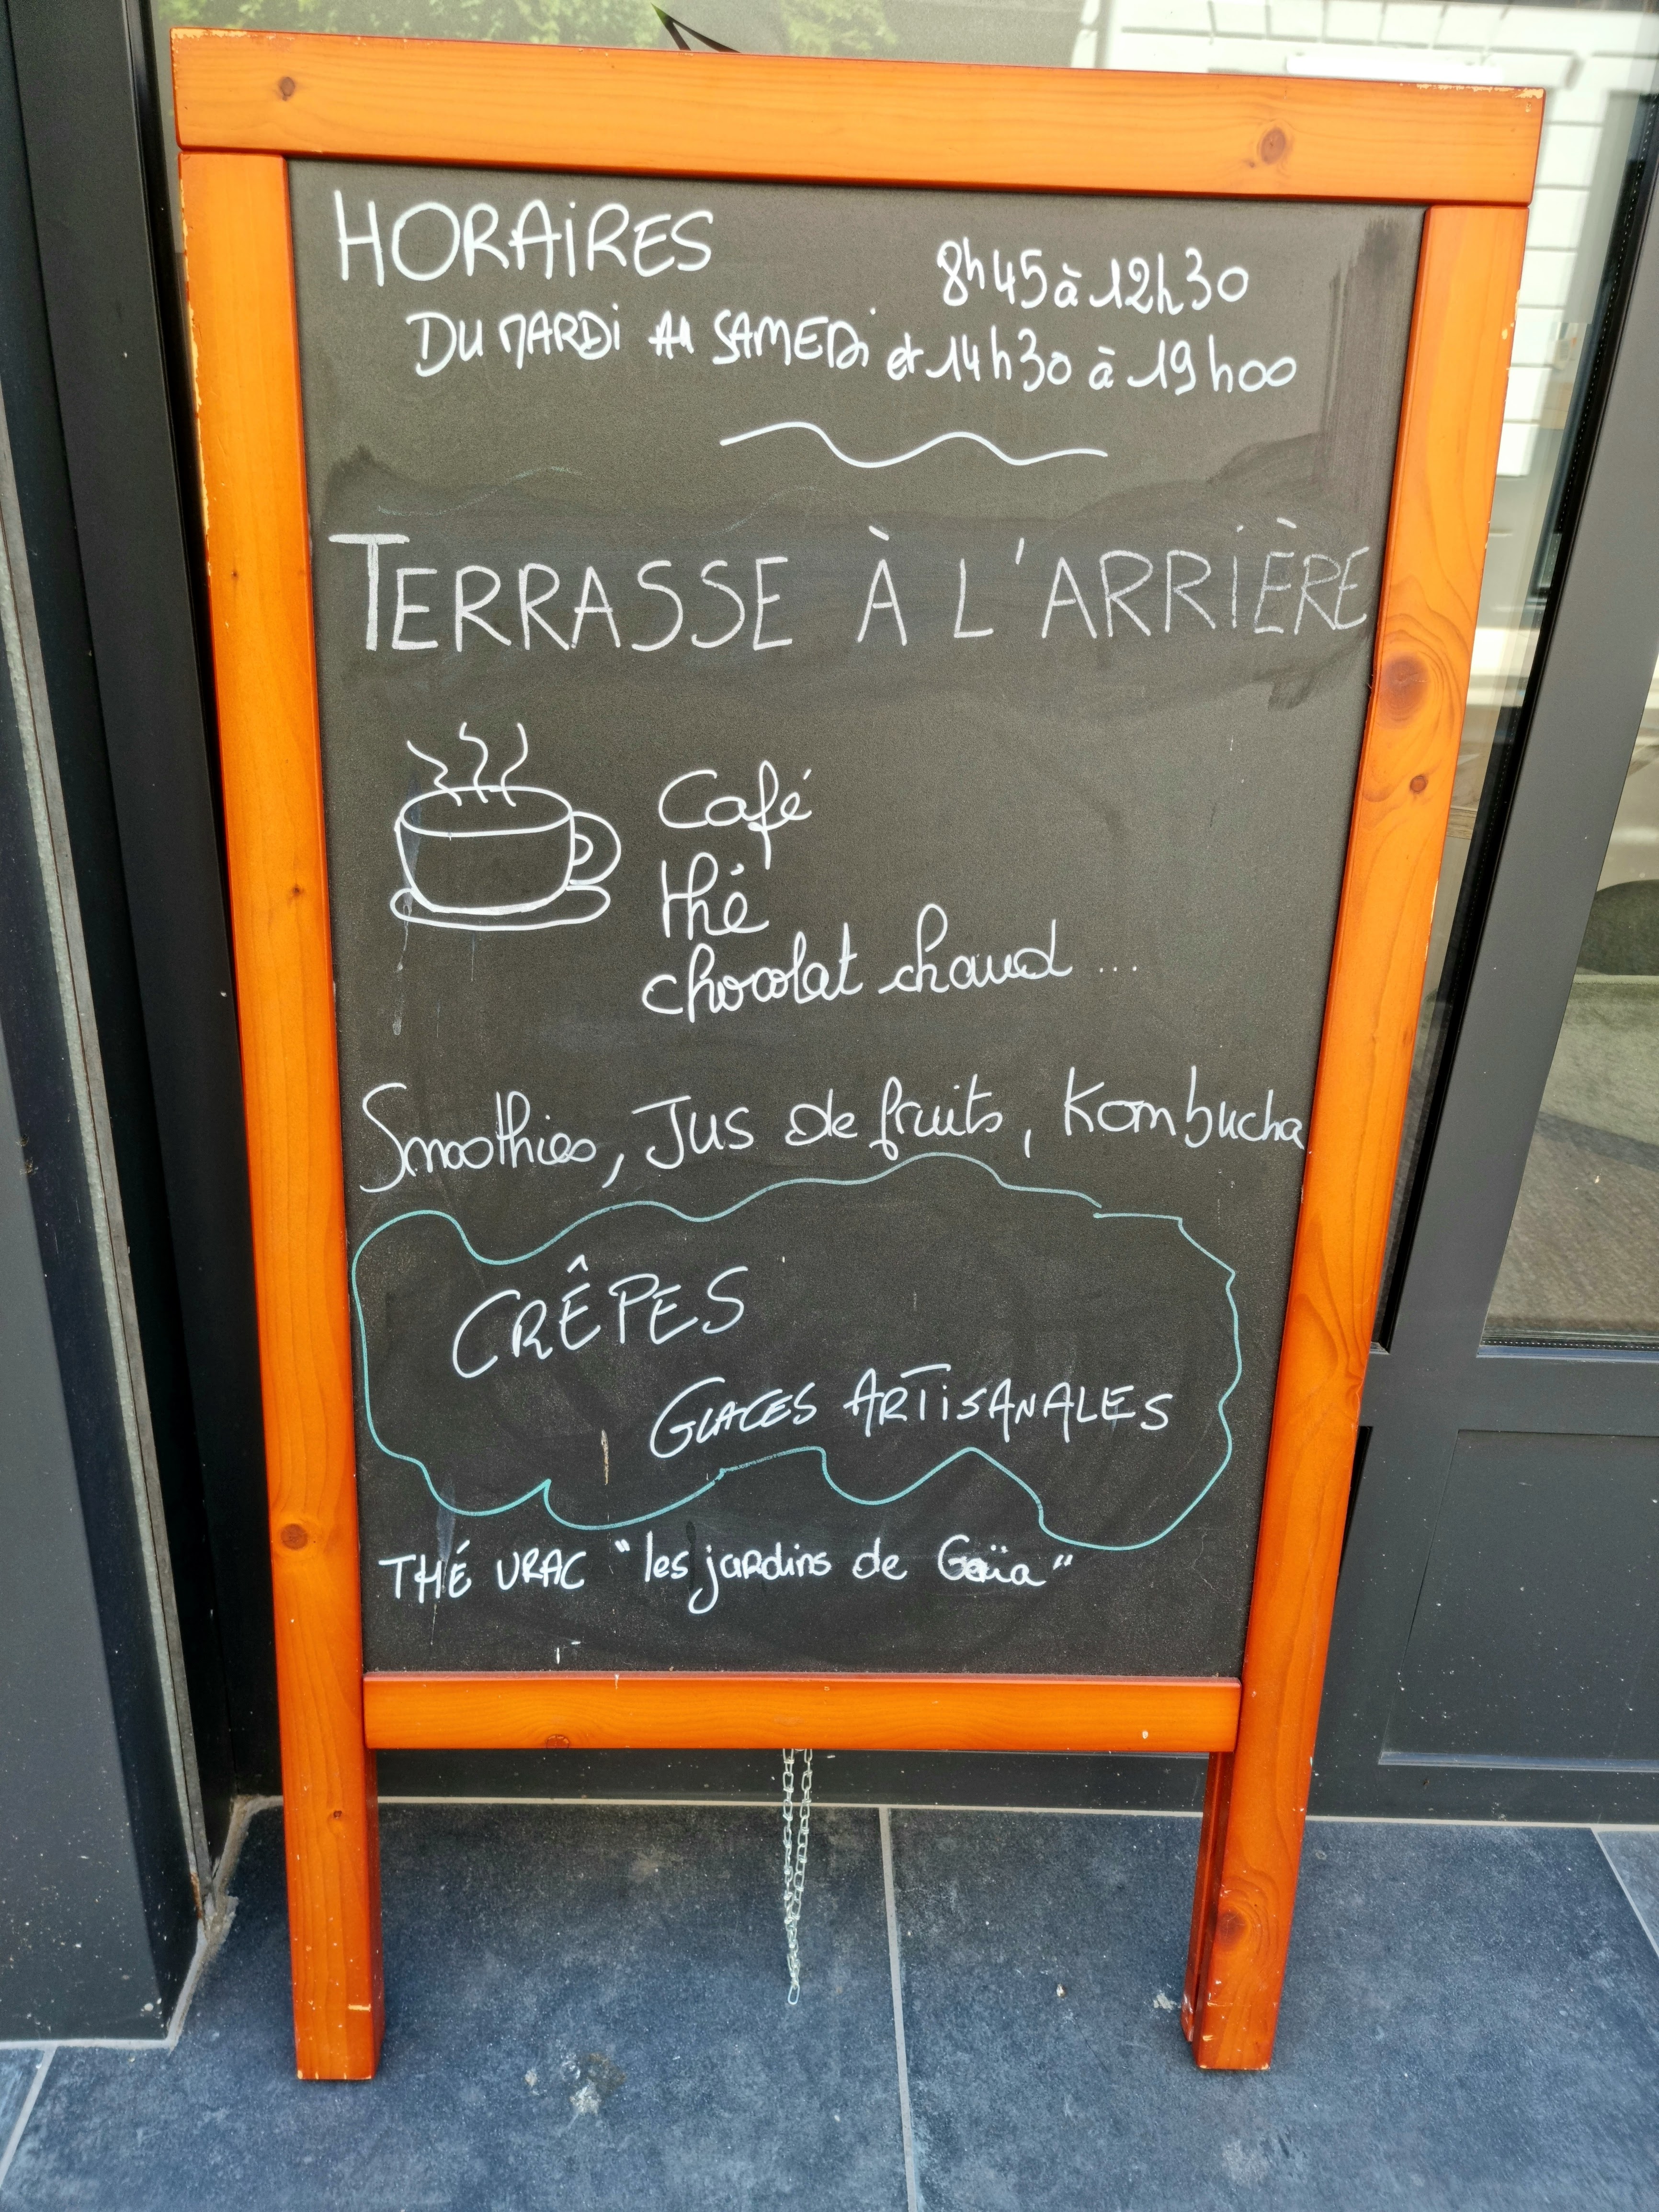 HORAIRES
8h45 à 12h30
DU MARDI AU SAMEDI et 14h30 à 19h00
TERRASSE À L'ARRIÈRE
Café
thé
chocolat chaud ...
Smoothies, Jus de fruits, Kombucha
CRÊPES
GLACES ARTISANALES
THÉ VRAC "les jardins de Gaïa"